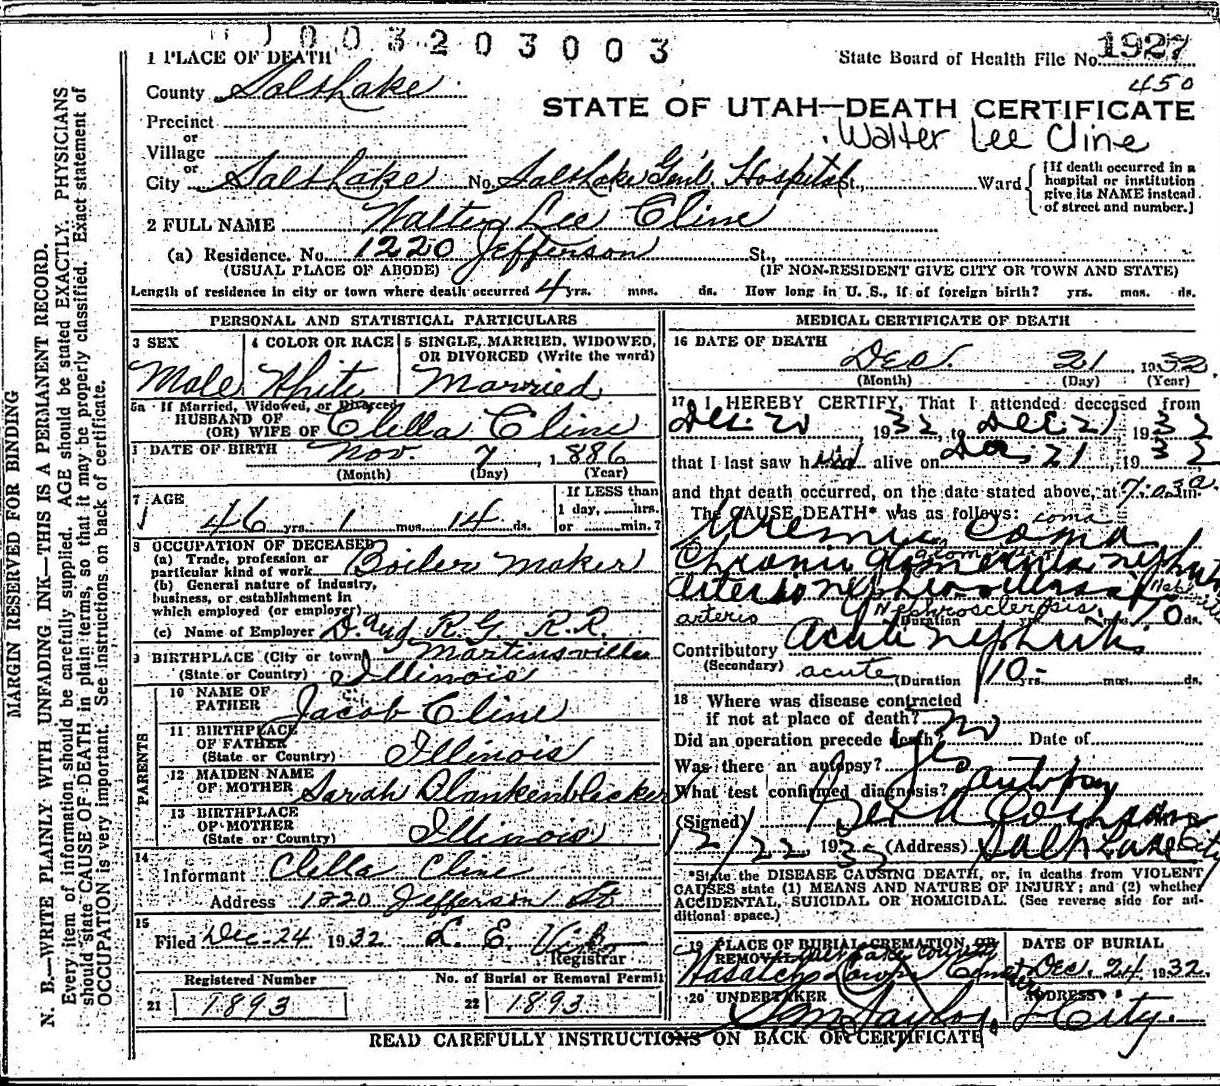 1003203003
State Board of Health File No. 1927
450
1 PLACE OF DEATH
County Salt Lake
STATE OF UTAH—DEATH CERTIFICATE
Walter Lee Cline
Precinct
or
Village
or
City Salt Lake No. Salt Lake Gen'l. Hospital St., Ward {[If death occurred in a hospital or institution give its NAME instead of street and number.]
2 FULL NAME Walter Lee Cline
(a) Residence. No. 1220 Jefferson St.,
(USUAL PLACE OF ABODE) (IF NON-RESIDENT GIVE CITY OR TOWN AND STATE)
Length of residence in city or town where death occurred 4 yrs. mos. ds. How long in U. S., if of foreign birth? yrs. mos. ds.
PERSONAL AND STATISTICAL PARTICULARS
3 SEX
Male
4 COLOR OR RACE
White
5 SINGLE, MARRIED, WIDOWED, OR DIVORCED (Write the word)
Married
5a If Married, Widowed, or Divorced
HUSBAND OF
(OR) WIFE OF Clella Cline
DATE OF BIRTH Nov. 7, 1886
(Month) (Day) (Year)
7 AGE
46 yrs. 1 mos. 14 ds.
If LESS than
1 day, hrs.
or min.?
8 OCCUPATION OF DECEASED
(a) Trade, profession or
particular kind of work Boiler Maker
(b) General nature of industry,
business, or establishment in
which employed (or employer)
(c) Name of Employer D. and R.G. R.R.
9 BIRTHPLACE (City or town) Martinsville
(State or Country) Illinois
PARENTS
10 NAME OF
FATHER Jacob Cline
11 BIRTHPLACE
OF FATHER
(State or Country) Illinois
12 MAIDEN NAME
OF MOTHER Sarah Blankenblicker
13 BIRTHPLACE
OF MOTHER
(State or Country) Illinois
14
Informant Clella Cline
Address 1220 Jefferson St
15
Filed Dec-24 1932 L. E.
Registrar
Registered Number
21 1893
No. of Burial or Removal Permit
22 1893
MEDICAL CERTIFICATE OF DEATH
16 DATE OF DEATH
Dec. 21, 1932
(Month) (Day) (Year)
17 I HEREBY CERTIFY, That I attended deceased from
Dec. 20 1932, to Dec 21, 1932
that I last saw him alive on Dec. 21 1932
and that death occurred, on the date stated above, at 7:03 a m.
The CAUSE DEATH* was as follows:
coma
Uremic Coma
Chronic glomerulo nephritis
arterio nephrosclerosis
arterio Nephrosclerosis
(Duration yrs. mos. 10 ds.
Contributory Acute nephritis
(Secondary) acute (Duration 10 yrs. mos. ds.
18 Where was disease contracted
if not at place of death?
Did an operation precede death? no Date of
Was there an autopsy? yes
What test confirmed diagnosis? autopsy
(Signed)
12/22 1932 (Address) Salt Lake City
*State the DISEASE CAUSING DEATH, or, in deaths from VIOLENT
CAUSES state (1) MEANS AND NATURE OF INJURY; and (2) whether
ACCIDENTAL, SUICIDAL OR HOMICIDAL. (See reverse side for ad-
ditional space.)
19 PLACE OF BURIAL, CREMATION, OR
REMOVAL Salt Lake County
Wasatch Lawn Cemetery
DATE OF BURIAL
Dec. 24 1932
20 UNDERTAKER
Taylor
ADDRESS
City.
READ CAREFULLY INSTRUCTIONS ON BACK OF CERTIFICATE
MARGIN RESERVED FOR BINDING
N. B.—WRITE PLAINLY WITH UNFADING INK—THIS IS A PERMANENT RECORD.
Every item of information should be carefully supplied. AGE should be stated EXACTLY. PHYSICIANS
should state CAUSE OF DEATH in plain terms, so that it may be properly classified. Exact statement of
OCCUPATION is very important. See instructions on back of certificate.